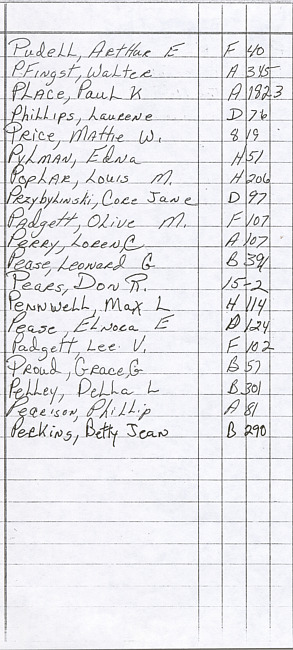 Pudell, Arthur E F 40
Pfingst, Walter A 345
Place, Paul K A 1923
Phillips, Laurene D 76
Price, Mattie W. 8 19
Pylman, Edna H 51
Poplar, Louis M. H 206
Przybylinski, Core Jane D 97
Padgett, Olive M. F 107
Perry, Loren C A 107
Pease, Leonard G B 391
Pears, Don R. 15-2
Pennwell, Max L H 114
Pease, Elnora E D 124
Padgett Lee V. F 102
Proud, Grace G B 57
Pelley, Della L B 301
Pearison, Phillip A 81
Perkins, Betty Jean B 290